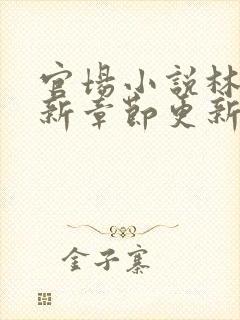 官场小説林
新章節更新
金子寨